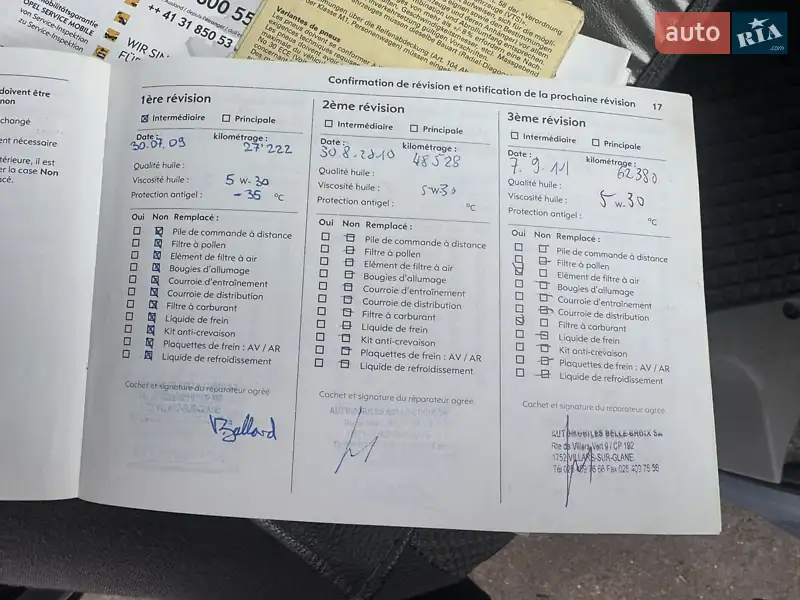 auto RIA .com
mobilitätsgarantie
OPEL SERVICE MOBILE
von Service-Inspektion
zu Service-Inspektion
++ 41 31 850 53
WIR SIN
Variantes de pneus
Confirmation de révision et notification de la prochaine révision 17
doivent être
non
changé
ent nécessaire
térieure, il est
er la case Non
acé.
1ère révision
Intermédiaire Principale
Date : kilométrage :
30.07.09 27'222
Qualité huile :
Viscosité huile : 5 w-30
Protection antigel : -35 °C
Oui Non Remplacé :
Pile de commande à distance
Filtre à pollen
Elément de filtre à air
Bougies d'allumage
Courroie d'entraînement
Courroie de distribution
Filtre à carburant
Liquide de frein
Kit anti-crevaison
Plaquettes de frein : AV / AR
Liquide de refroidissement
Cachet et signature du réparateur agréé
2ème révision
Intermédiaire Principale
Date : kilométrage :
30.8.2010 48528
Qualité huile :
Viscosité huile : 5w30
Protection antigel : °C
Oui Non Remplacé :
Pile de commande à distance
Filtre à pollen
Elément de filtre à air
Bougies d'allumage
Courroie d'entraînement
Courroie de distribution
Filtre à carburant
Liquide de frein
Kit anti-crevaison
Plaquettes de frein : AV / AR
Liquide de refroidissement
Cachet et signature du réparateur agréé
3ème révision
Intermédiaire Principale
Date : kilométrage :
7.9.11 62380
Qualité huile :
Viscosité huile : 5 w-30
Protection antigel : °C
Oui Non Remplacé :
Pile de commande à distance
Filtre à pollen
Elément de filtre à air
Bougies d'allumage
Courroie d'entraînement
Courroie de distribution
Filtre à carburant
Liquide de frein
Kit anti-crevaison
Plaquettes de frein : AV / AR
Liquide de refroidissement
Cachet et signature du réparateur agréé
AUTOMOBILES BELLE-CROIX SA
1752 VILLARS-SUR-GLANE